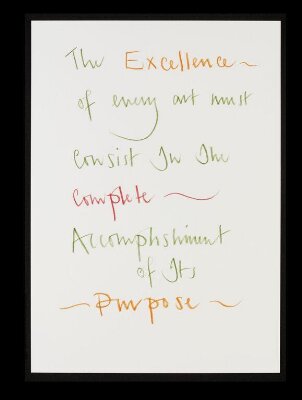 The Excellence
of every art must
Consist In The
Complete
Accomplishment
of Its
Purpose